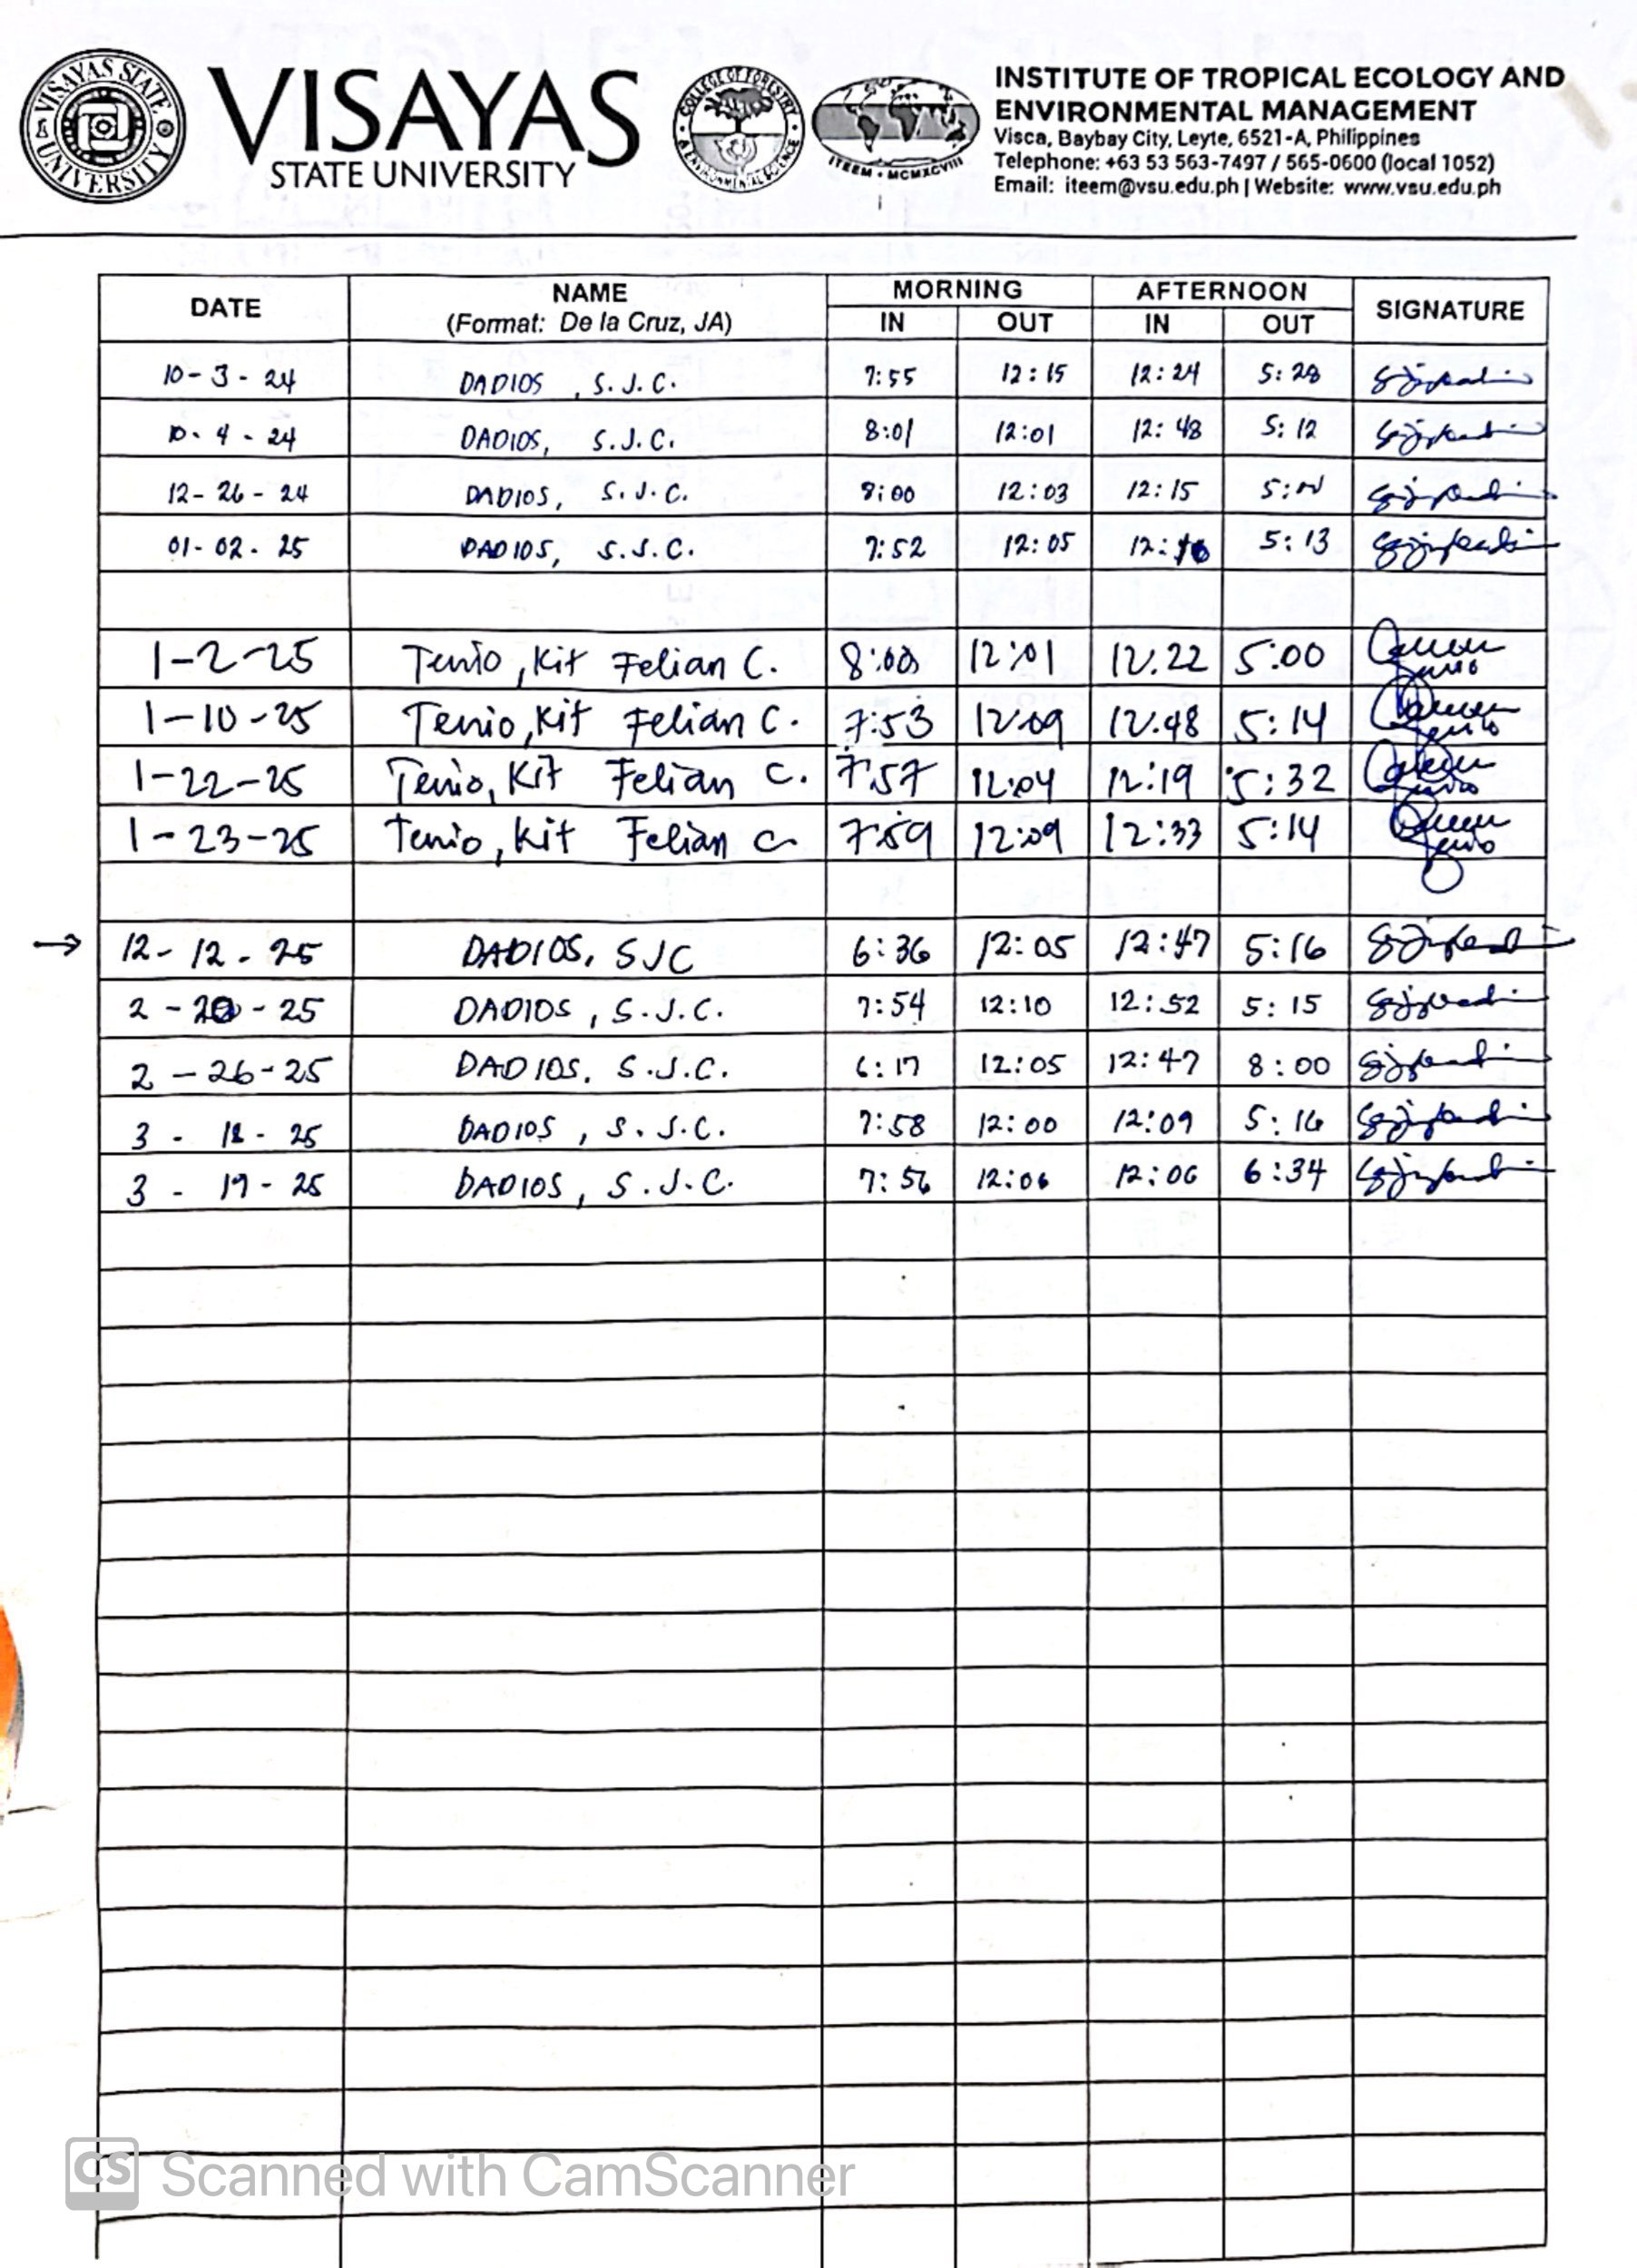 VISAYAS STATE UNIVERSITY
VISAYAS
STATE UNIVERSITY
COLLEGE OF FORESTRY & ENVIRONMENTAL SCIENCE
ITEEM • MCMXCVIII
INSTITUTE OF TROPICAL ECOLOGY AND
ENVIRONMENTAL MANAGEMENT
Visca, Baybay City, Leyte, 6521-A, Philippines
Telephone: +63 53 563-7497 / 565-0600 (local 1052)
Email: iteem@vsu.edu.ph | Website: www.vsu.edu.ph
DATE NAME (Format: De la Cruz, JA) MORNING AFTERNOON SIGNATURE
IN OUT IN OUT
10-3-24 DADIOS, S.J.C. 7:55 12:15 12:24 5:28
10-4-24 DADIOS, S.J.C. 8:01 12:01 12:48 5:12
12-26-24 DADIOS, S.J.C. 8:00 12:03 12:15
01-02-25 DADIOS, S.J.C. 7:52 12:05 5:13
1-2-25 Tenio, Kit Felian C. 8:00 12:01 12:22 5:00
1-10-25 Tenio, Kit Felian C. 7:53 12:09 12:48 5:14
1-22-25 Tenio, Kit Felian C. 7:57 12:04 12:19 5:32
1-23-25 Tenio, Kit Felian C 7:59 12:09 12:33 5:14
→ 12-12-25 DADIOS, SJC 6:36 12:05 12:47 5:16
2-20-25 DADIOS, S.J.C. 7:54 12:10 12:52 5:15
2-26-25 DADIOS, S.J.C. 6:17 12:05 12:47 8:00
3-18-25 DADIOS, S.J.C. 7:58 12:00 12:09 5:16
3-19-25 DADIOS, S.J.C. 7:56 12:06 12:06 6:34
CS Scanned with CamScanner